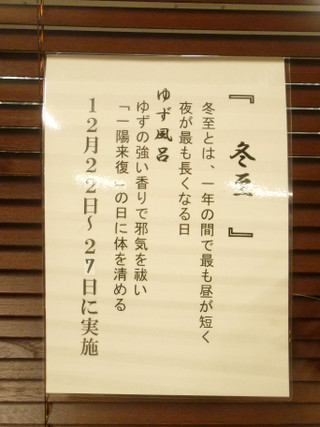 『 冬至 』
冬至とは、一年の間で最も昼が短く
夜が最も長くなる日
ゆず風呂
ゆずの強い香りで邪気を祓い
「一陽来復」の日に体を清める
12月22日～27日に実施